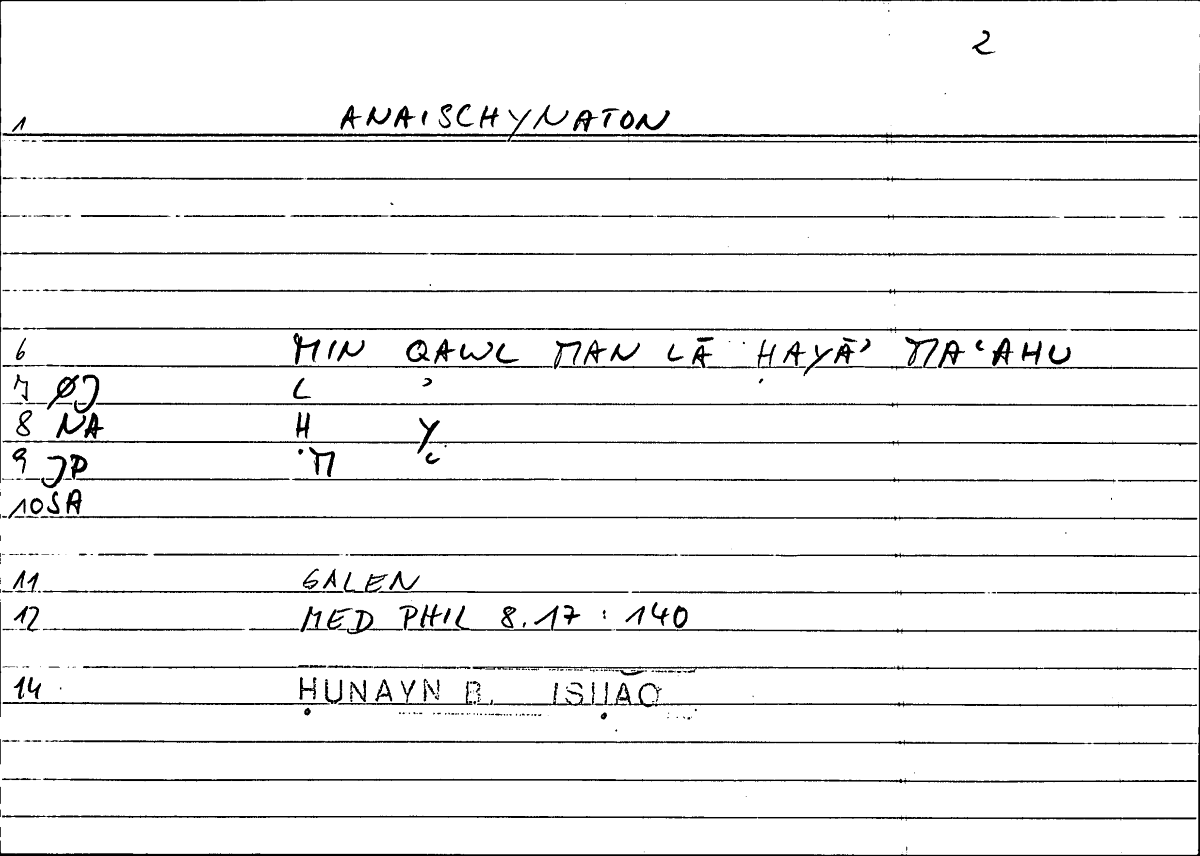 2
1 ANAISCHYNATON
6 MIN QAWL MAN LĀ ḤAYĀʾ MAʿAHU
7 ØJ L ʾ
8 NA Ḥ Y
9 JP M ʿ
10 SA
11 GALEN
12 MED PHIL 8.17 : 140
14 ḤUNAYN B. ISḤĀQ